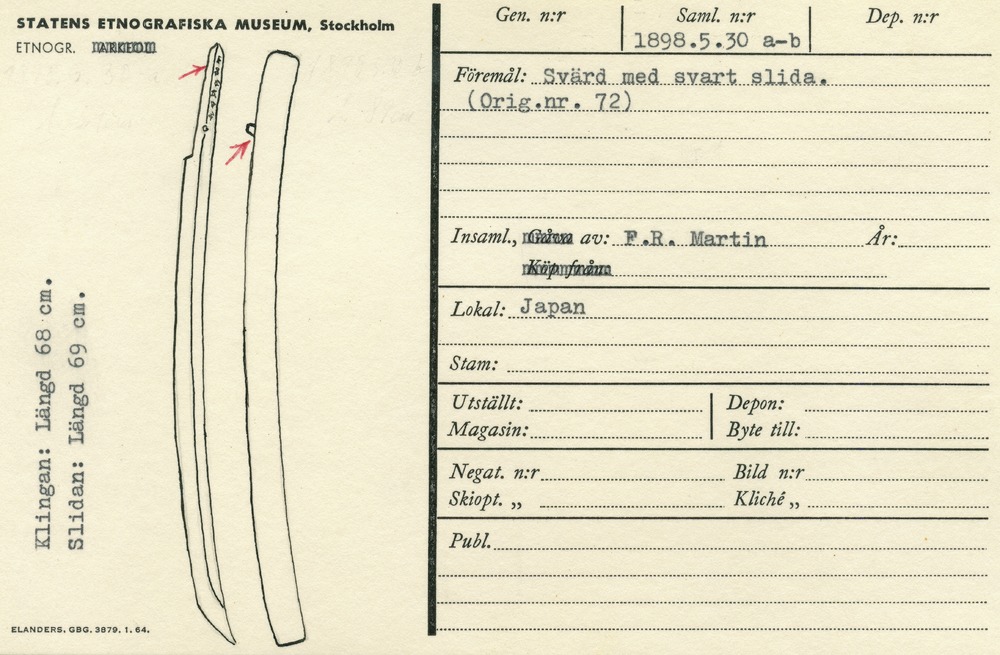 STATENS ETNOGRAFISKA MUSEUM, Stockholm
ETNOGR.
Klingan: Längd 68 cm.
Slidan: Längd 69 cm.
ELANDERS. GBG. 3879. 1. 64.
Gen. n:r
Saml. n:r
1898.5.30 a-b
Dep. n:r
Föremål: Svärd med svart slida.
(Orig.nr. 72)
Insaml., Gåva av: F.R. Martin År:
Köp från:
Lokal: Japan
Stam:
Utställt: Depon:
Magasin: Byte till:
Negat. n:r Bild n:r
Skiopt. „ Kliché „
Publ.